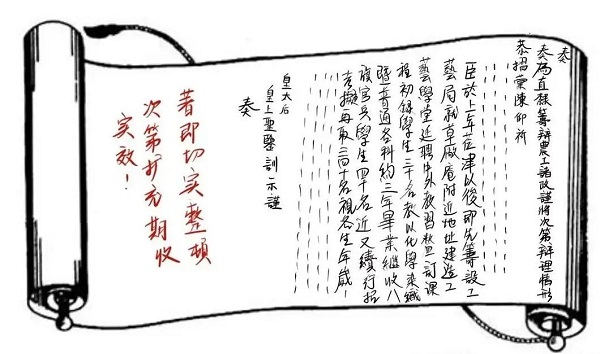 奏
奏為直隸籌辦農工諸政謹將次第辦理情形
恭招棠陳仰祈
臣於上年莅津以後即先籌設工
藝局就草廠庵附近地址建造工
藝學堂延聘中外教習釐訂課
程初錄學生三十名教以化學染織
暨普通各科約三年畢業繼收八
旗官兵學生四十名近又續行招
考擬每取三四十名視各生年歲
皇太后
皇上聖鑒訓示謹
奏
著即切实整頓
次第扩充期收
实效！